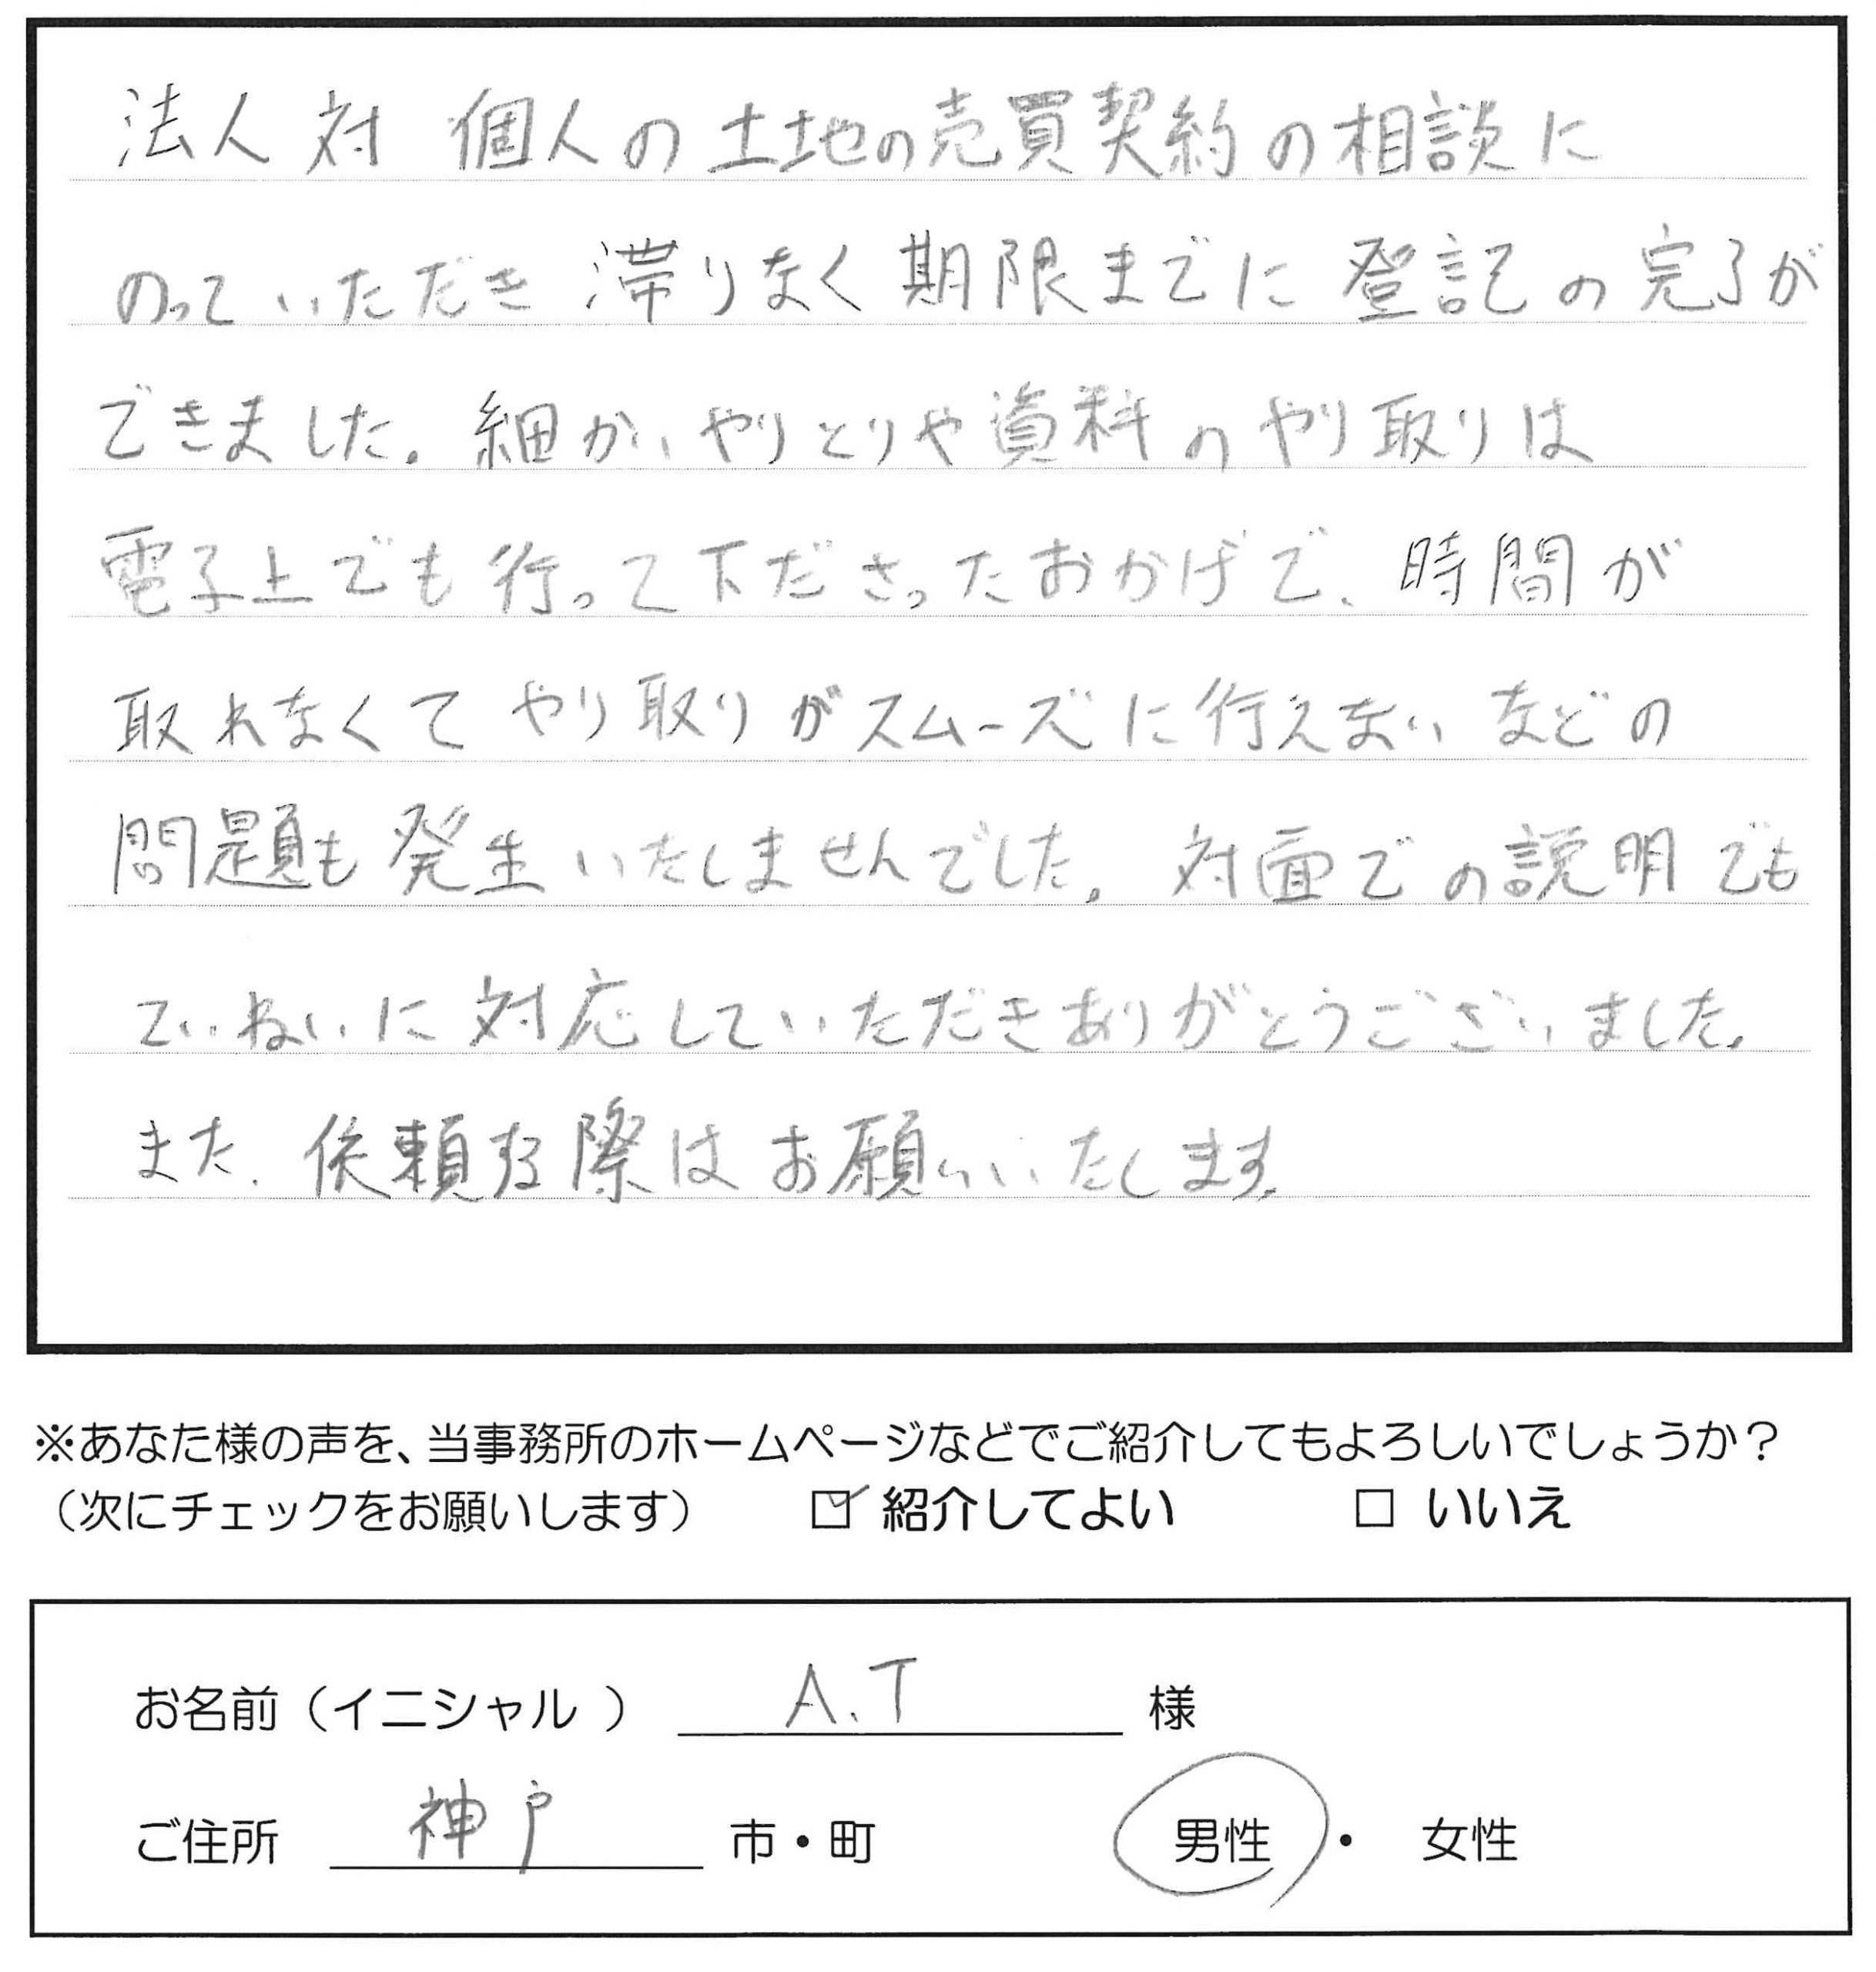 法人対 個人の土地の売買契約の相談に
のっていただき 滞りなく期限までに登記の完了が
できました。細かいやりとりや資料のやり取りは
電子上でも行って下ださったおかげで、時間が
取れなくてやり取りがスムーズに行えないなどの
問題も発生いたしませんでした。対面での説明でも
ていねいに対応していただきありがとうございました。
また、依頼する際はお願いいたします。
※あなた様の声を、当事務所のホームページなどでご紹介してもよろしいでしょうか？
（次にチェックをお願いします） ☑ 紹介してよい □ いいえ
お名前（イニシャル ） A.T 様
ご住所 神戸 市・町 男性 ・ 女性